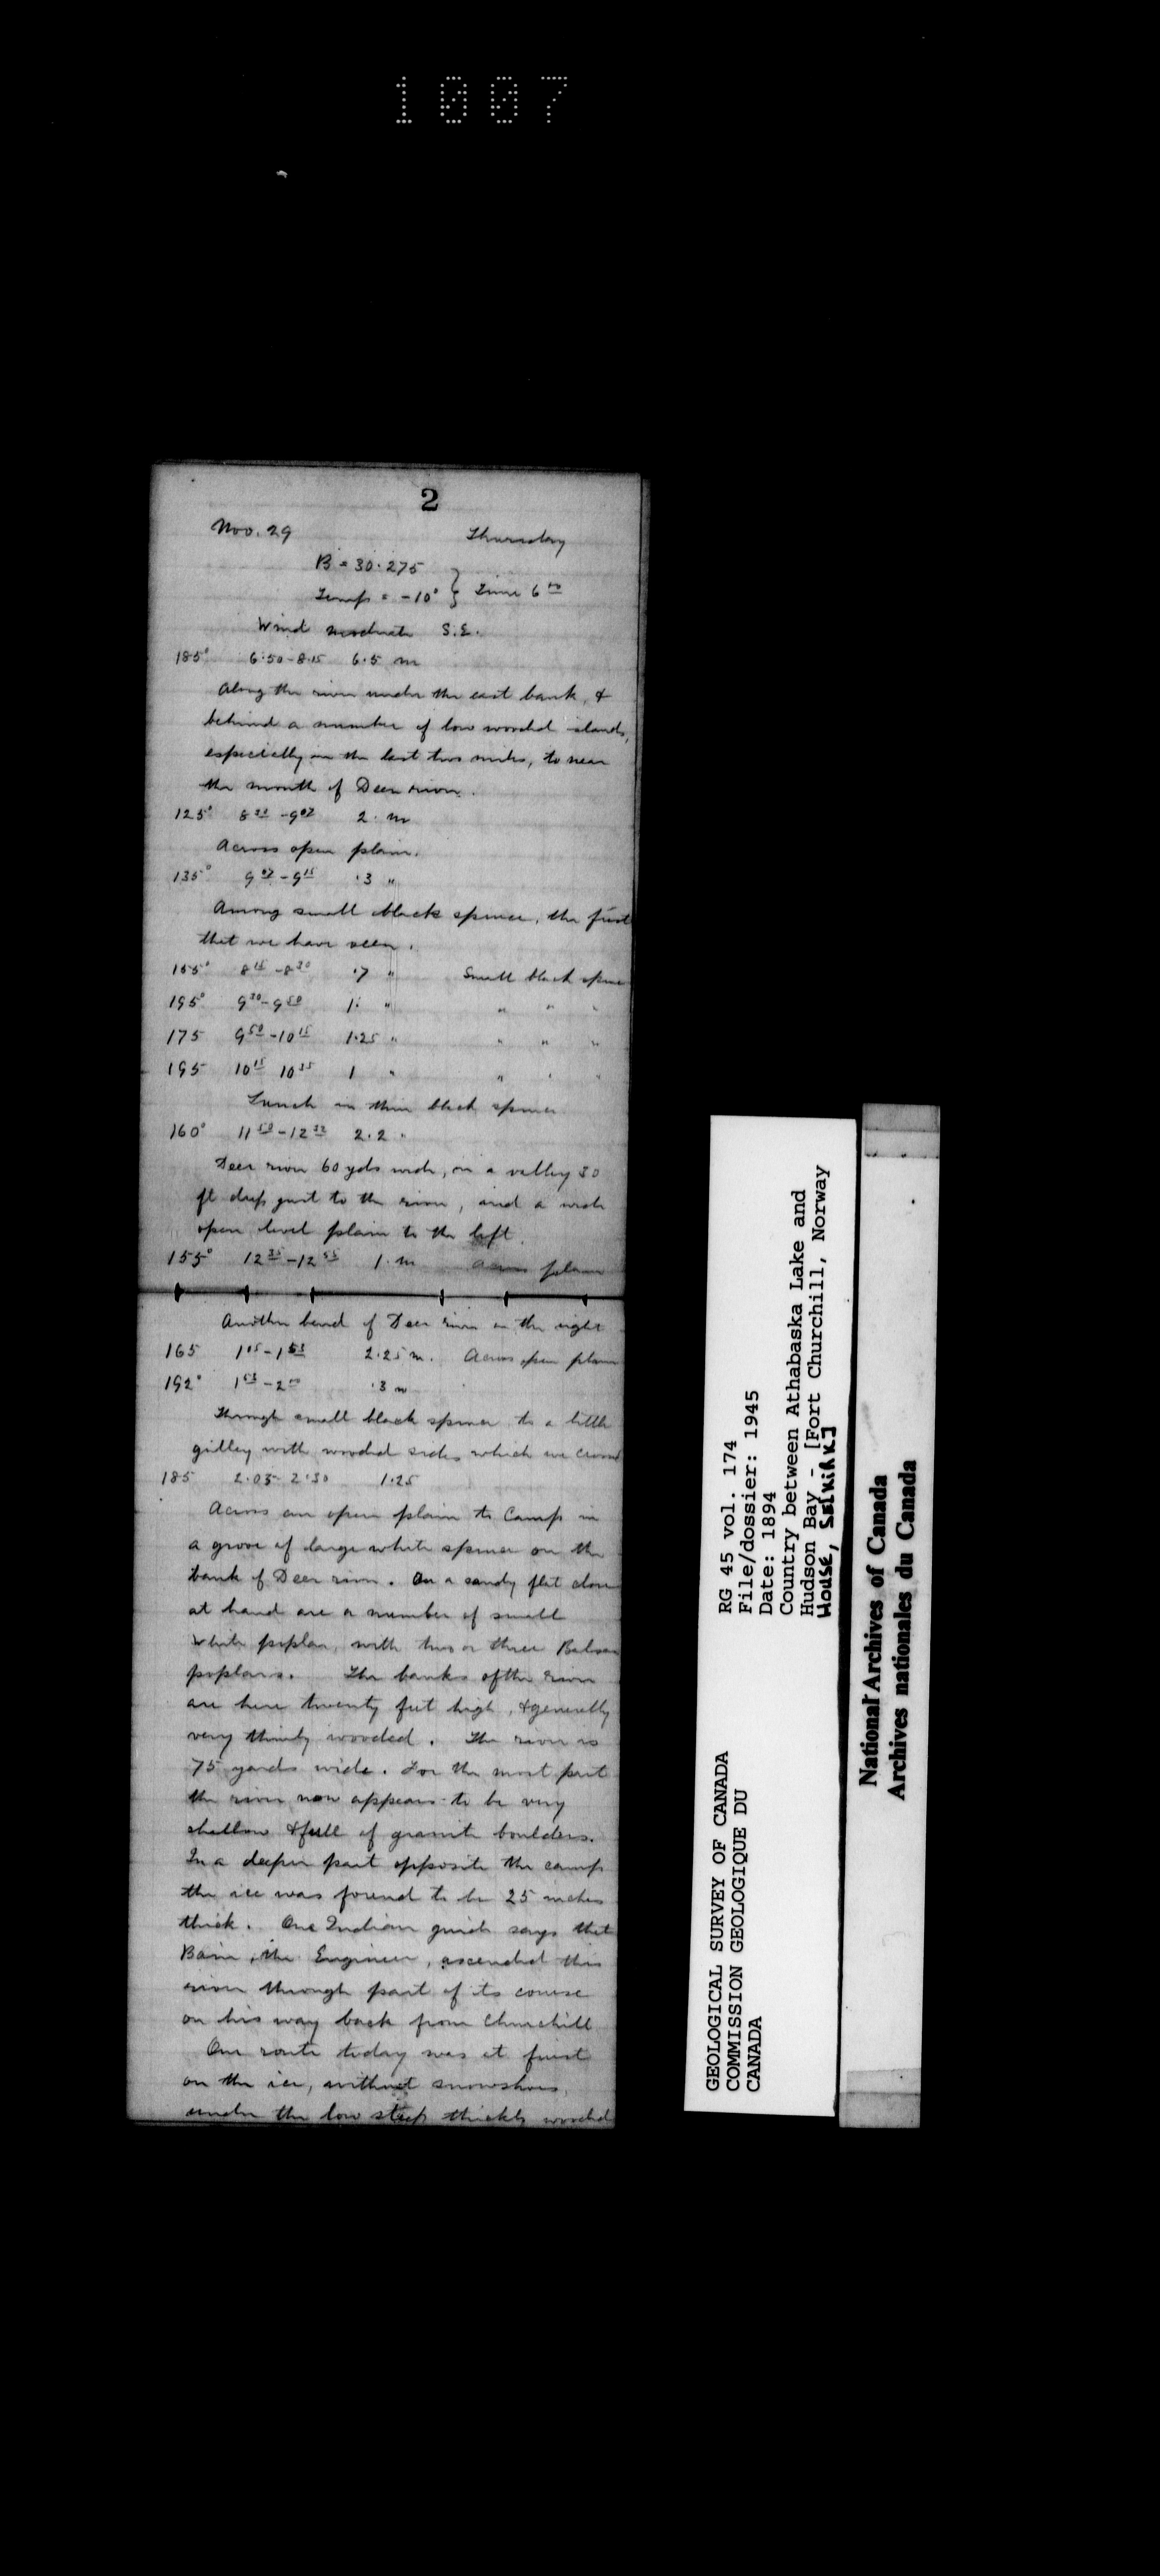 1007
2
Nov. 29 Thursday
B = 30.275
Temp = -10° } Time 6 00
Wind moderate S.E.
185° 6.50-8.15 6.5 m
Along the river under the east bank, &
behind a number of low wooded islands,
especially in the last two miles, to near
the mouth of Deer river.
125° 8 -9 07 2. m
Across open plain.
135° 9 07 - 9 15 .3 "
Among small black spruce, the first
that we have seen.
155° 8 15 -8 30 .7 " Small black spruce
195° 9 30-9 50 1. " " " "
175 9 50-10 15 1.25 " " " "
195 10 15 10 35 1 " " " "
Lunch in thin black spruce
160° 11 50-12 32 2.2 "
Deer river 60 yds wide, in a valley 30
ft deep just to the river, and a wide
open level plain to the left.
155° 12 35-12 55 1. m across plain
Another bend of Deer river on the right
165 1 05-1 53 2.25 m. Across open plain
192° 1 53-2 00 .3 m
Through small black spruce to a little
gulley with wooded sides which we crossed
185 2.03-2.30 1.25
Across an open plain to Camp in
a grove of large white spruce on the
bank of Deer river. On a sandy flat close
at hand are a number of small
white poplar, with two or three Balsam
poplars. The banks of the river
are here twenty feet high, & generally
very thinly wooded. The river is
75 yards wide. For the most part
the river now appears to be very
shallow & full of granite boulders.
In a deeper part opposite the camp
the ice was found to be 25 inches
thick. Our Indian guide says that
Bain, the Engineer, ascended this
river through part of its course
on his way back from Churchill
Our route today was at first
on the ice, without snowshoes,
under the low steep thickly wooded
GEOLOGICAL SURVEY OF CANADA
COMMISSION GEOLOGIQUE DU
CANADA
RG 45 vol. 174
File/dossier: 1945
Date: 1894
Country between Athabaska Lake and
Hudson Bay - [Fort Churchill, Norway
House, Selkirk]
National Archives of Canada
Archives nationales du Canada